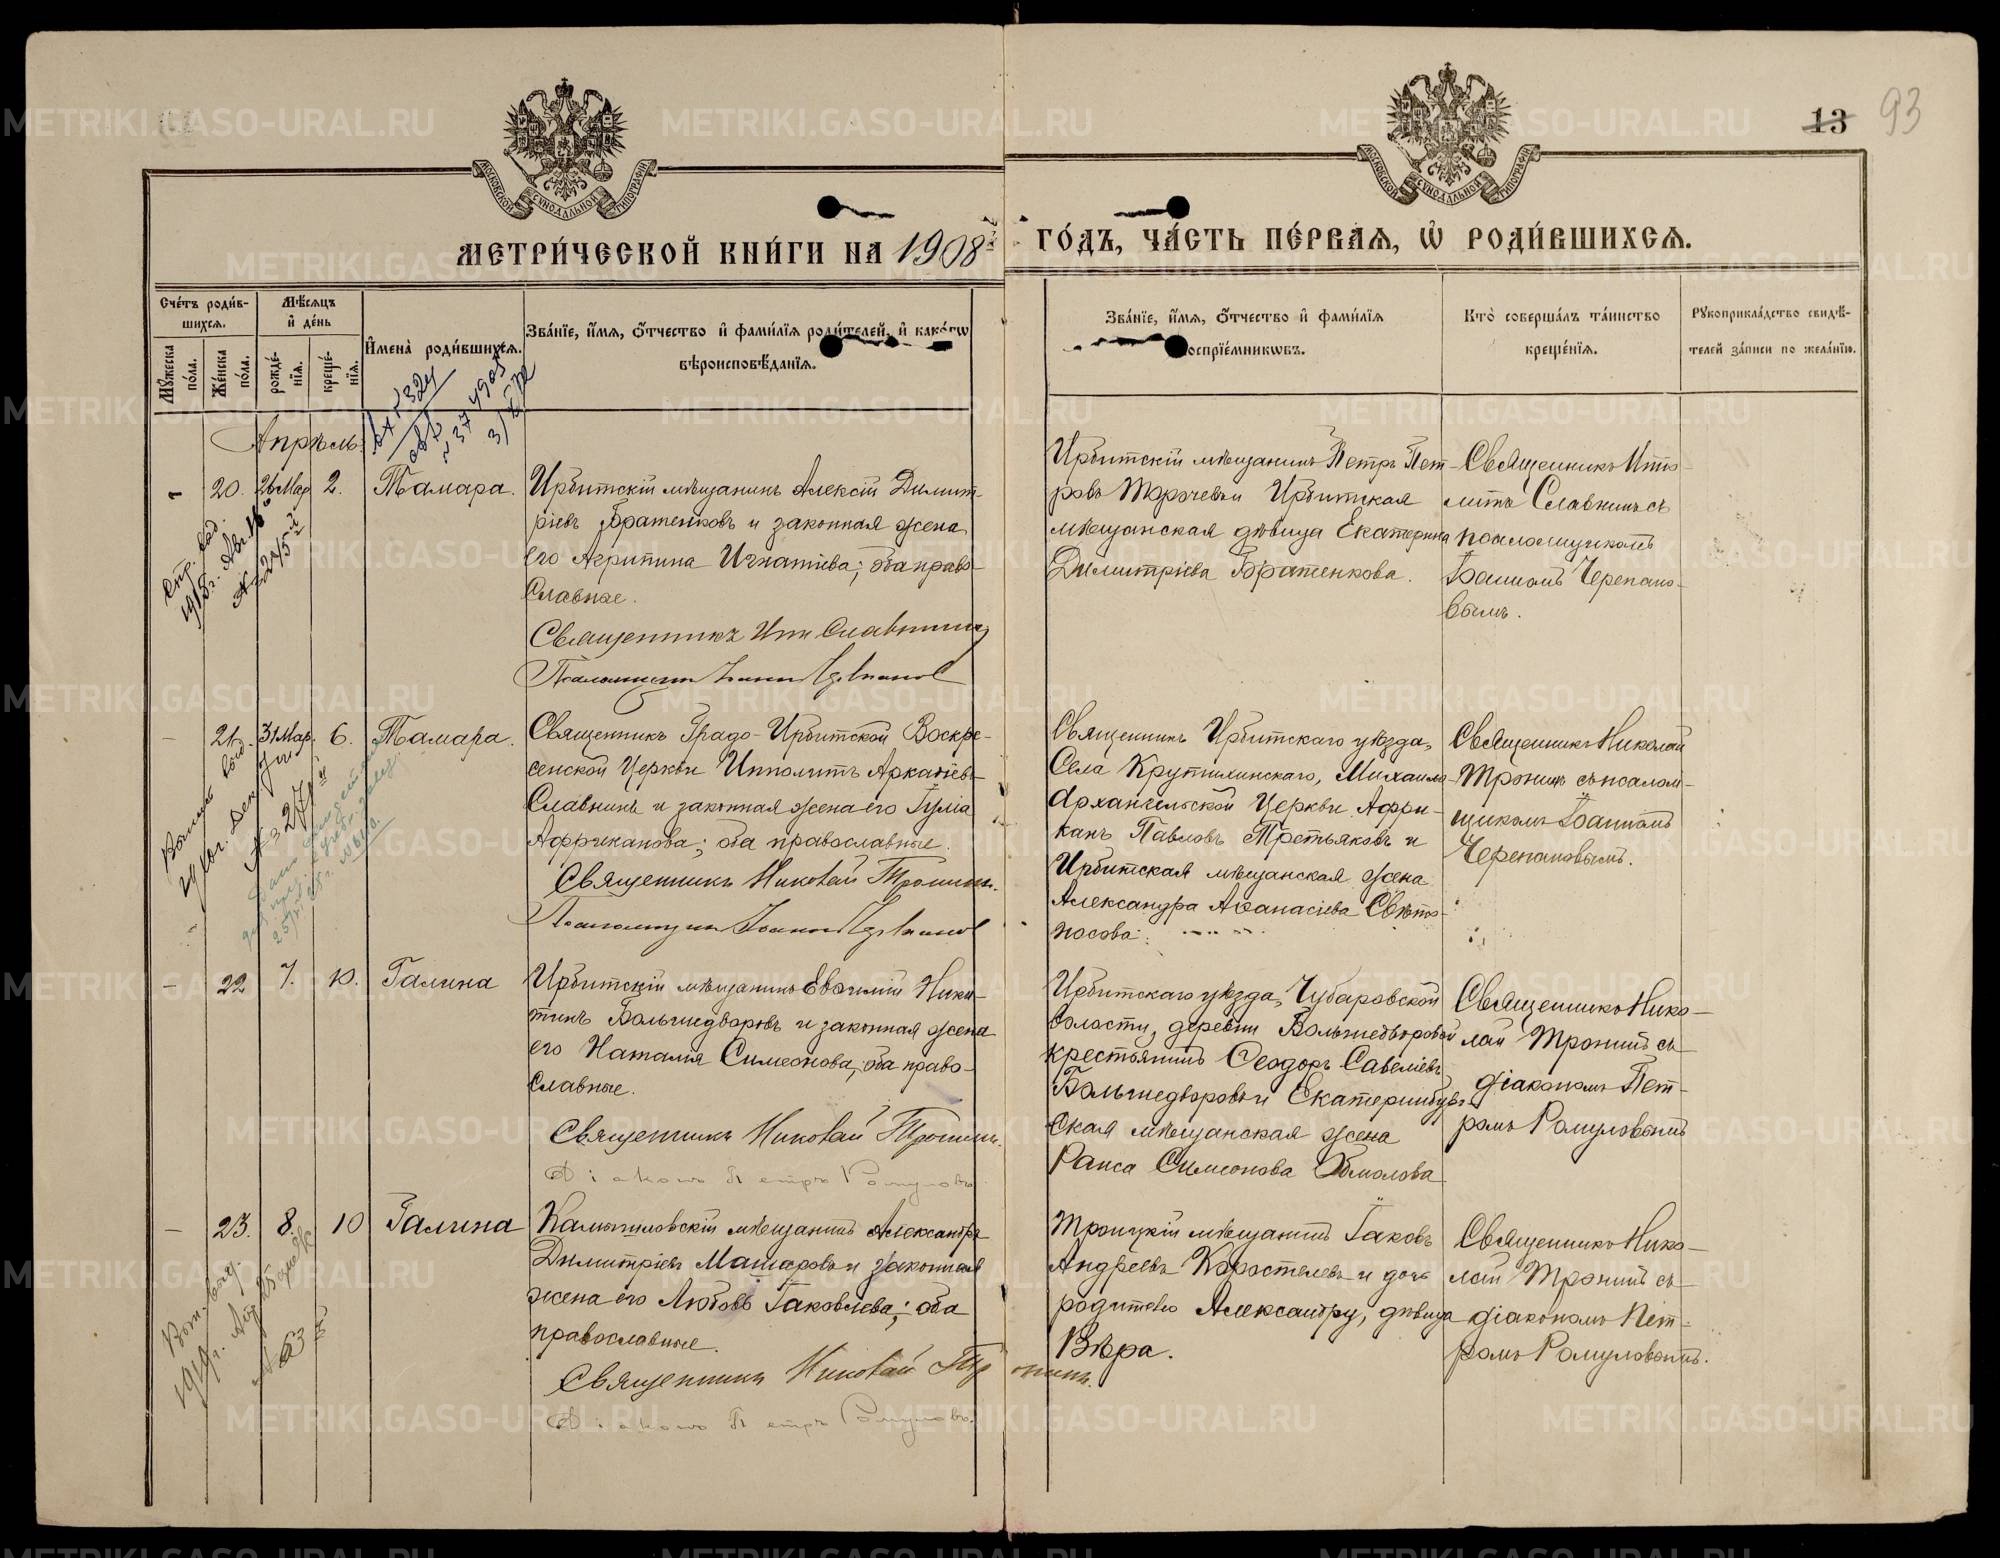 13 93
МОСКОВСКОЙ СѴНОДАЛЬНОЙ ТИПОГРАФІИ
МОСКОВСКОЙ СѴНОДАЛЬНОЙ ТИПОГРАФІИ
МЕТРИ́ЧЕСКОЙ КНИ́ГИ НА 1908 ГО́ДЪ, ЧА́СТЬ ПЕ́РВАѦ, Ѡ РОДИ́ВШИХСѦ.
Сче́тъ роди́в-
шихсѧ.
Мꙋ́жеска по́ла.
Же́нска по́ла.
Мѣ́сѧцъ
и҆ де́нь
рожде́-
нїѧ.
креще́-
нїѧ.
И҆мена̀ роди́вшихсѧ.
Зва́нїе, и҆́мѧ, ѻ҆́тчество и҆ фами́лїѧ роди́телей, и҆ како́гѡ
вѣроисповѣ́данїѧ.
Зва́нїе, и҆́мѧ, ѻ҆́тчество и҆ фами́лїѧ
воспрїе́мникѡвъ.
Кто̀ соверша́лъ та́инство
креще́нїѧ.
Рꙋкоприкла́дство свидѣ́-
телей за́писи по жела́нїю.
Апрѣль
20. 26 Мар 2. Тамара.
Ирбитскій мѣщанинъ Алексій Димит-
ріевъ Братенковъ и законная жена
его Агрипина Игнатіева; оба право-
славные.
Священникъ Ип. Славнинъ
Псаломщикъ Іоаннъ Черепановъ
Ирбитскій мѣщанинъ Петръ Пет-
ровъ Торочевъ и Ирбитская
мѣщанская дѣвица Екатерина
Димитріева Братенкова.
Священникъ Иппо-
литъ Славнинъ съ
псаломщикомъ
Іоанномъ Черепано-
вымъ.
– 21. 31 Мар. 6. Тамара.
Священникъ Градо-Ирбитской Воскре-
сенской Церкви Ипполитъ Аркадіевъ
Славнинъ и законная жена его Іулія
Аффриканова; оба православные.
Священникъ Николай Тронинъ.
Псаломщикъ Іоаннъ Черепановъ
Священникъ Ирбитскаго уѣзда,
Села Крутихинскаго, Михаило-
Архангельской Церкви Аффри-
канъ Павловъ Третьяковъ и
Ирбитская мѣщанская жена
Александра Аѳанасіева Свѣто-
носова.
Священникъ Николай
Тронинъ съ псалом-
щикомъ Іоанномъ
Черепановымъ.
– 22 7. 10. Галина
Ирбитскій мѣщанинъ Евѳимій Ники-
тинъ Большедворовъ и законная жена
его Наталія Симеонова; оба право-
славные.
Священникъ Николай Тронинъ.
Діаконъ Петръ Ромуловъ
Ирбитскаго уѣзда, Чубаровской
волости, деревни Большедворовой
крестьянинъ Ѳеодоръ Савеліевъ
Большедворовъ и Екатеринбург-
ская мѣщанская жена
Раиса Симеонова Обмолова
Священникъ Нико-
лай Тронинъ съ
діакономъ Пет-
ромъ Ромуловымъ
– 23. 8. 10 Галина
Камышловскій мѣщанинъ Александръ
Димитріевъ Машаровъ и законная
жена его Любовь Іаковлева; оба
православные.
Священникъ Николай Тронинъ.
Діаконъ Петръ Ромуловъ.
Троицкій мѣщанинъ Іаковъ
Андреевъ Коростелевъ и дочь
родителю Александру, дѣвица
Вѣра.
Священникъ Нико-
лай Тронинъ съ
діакономъ Пет-
ромъ Ромуловымъ.